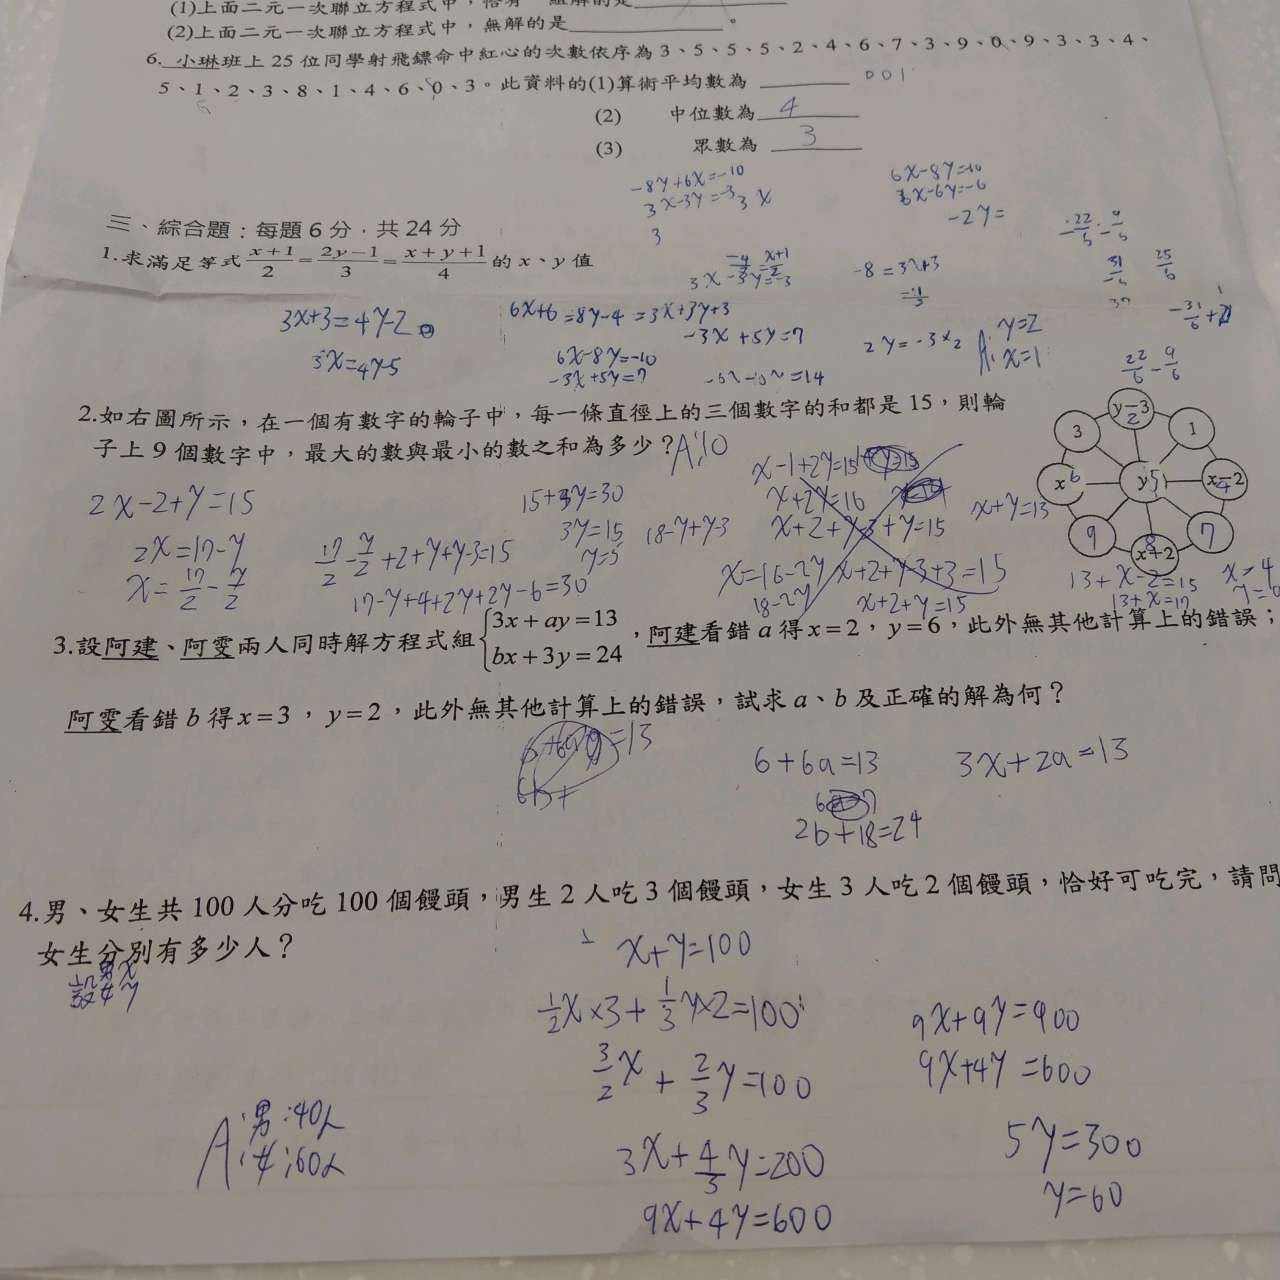 (1)上面二元一次聯立方程式中，恰有一組解的是
(2)上面二元一次聯立方程式中，無解的是 。
6. 小琳班上 25 位同學射飛鏢命中紅心的次數依序為 3、5、5、5、2、4、6、7、3、9、0、9、3、3、4、
5、1、2、3、8、1、4、6、0、3。此資料的(1)算術平均數為
001
(2) 中位數為 4
(3) 眾數為 3
-8y+6x=-10
3x-3y=-3
3
6x-8y=-10
-2y=
三、綜合題：每題 6 分，共 24 分
1.求滿足等式 x+1/2 = 2y-1/3 = x+y+1/4 的 x、y 值
-8=3x+3
3x+3=4y-2
3x=4y-5
6x+6=8y-4=3x+3y+3
-3x+5y=7
6x-8y=-10
-3x+5y=7
A: y=2
x=1
22/6-9/6
2.如右圖所示，在一個有數字的輪子中，每一條直徑上的三個數字的和都是 15，則輪
子上 9 個數字中，最大的數與最小的數之和為多少？ A:10
y-3 2
3
1
x 6
y 5
x-2 4
9
7
x+2 8
2x-2+y=15
2x=17-y
x=17/2-y/2
17/2-y/2+2+y+y-3=15
17-y+4+2y+2y-6=30
15+3y=30
3y=15
y=5
18-y+y-3
x-1+2y=15
x+2y=16
x+2+y-3+y=15
x=16-2y
x+2+y-3+3=15
18-2y
x+2+y=15
x+y=13
13+x-2=15
13+x=17
x=4
3.設阿建、阿雯兩人同時解方程式組 { 3x+ay=13 bx+3y=24 ，阿建看錯 a 得 x=2，y=6，此外無其他計算上的錯誤；
阿雯看錯 b 得 x=3，y=2，此外無其他計算上的錯誤，試求 a、b 及正確的解為何？
6+6a=13
3x+2a=13
2b+18=24
4.男、女生共 100 人分吃 100 個饅頭，男生 2 人吃 3 個饅頭，女生 3 人吃 2 個饅頭，恰好可吃完，請問
女生分別有多少人？
設男x
女y
x+y=100
1/2x×3+1/3y×2=100
3/2x+2/3y=100
3x+4/3y=200
9x+4y=600
9x+9y=900
9x+4y=600
5y=300
y=60
A:男:40人
女:60人